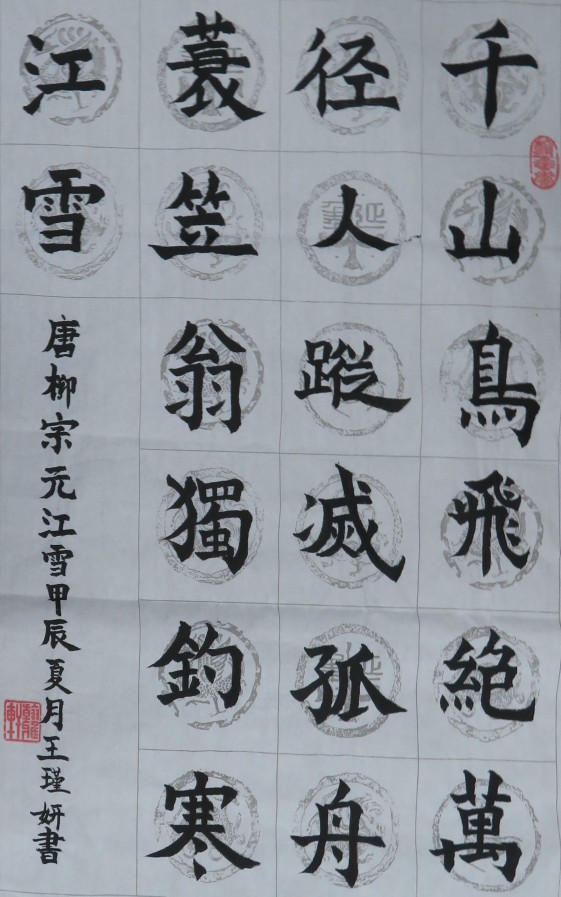 千山鳥飛絶萬
径人蹤滅孤舟
蓑笠翁獨釣寒
江雪
唐柳宗元江雪甲辰夏月王瑾妍書